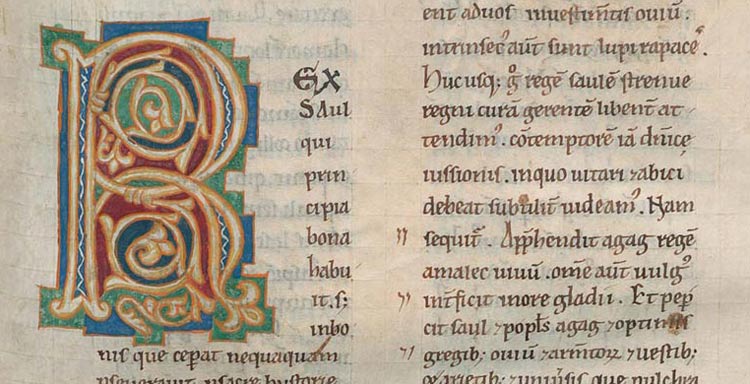 R EX
SAUL
qui
prin
cipia
bona
habu
it.s;
inbo
nis que cep̱at nequaquam
hystorie
ent̄ aduos inuestim̄tis ouiū.
intrinsecꝰ aūt sunt lupi rapaceˢ.
Hucusqꝫ g̊ regē saulē strenue
regni curā gerentē libent̄ at
tendimꝰ. cōtemptorē iā dn̄ice
iussionis. inquo uitari ⁊abici
debeat subtilit̄ uideamꝰ. Nam
sequit̄. App̱hendit agag regē
amalec uiuū. om̄e aūt uulgꝰ
int̄ficit inore gladii. Et pep̱
cit saul ⁊popl̄s agag ⁊optimis
gregibꝫ ouiū ⁊armtoꝝ ⁊uestibꝫ
⁊arietibꝫ ⁊uniūsis que pulchra